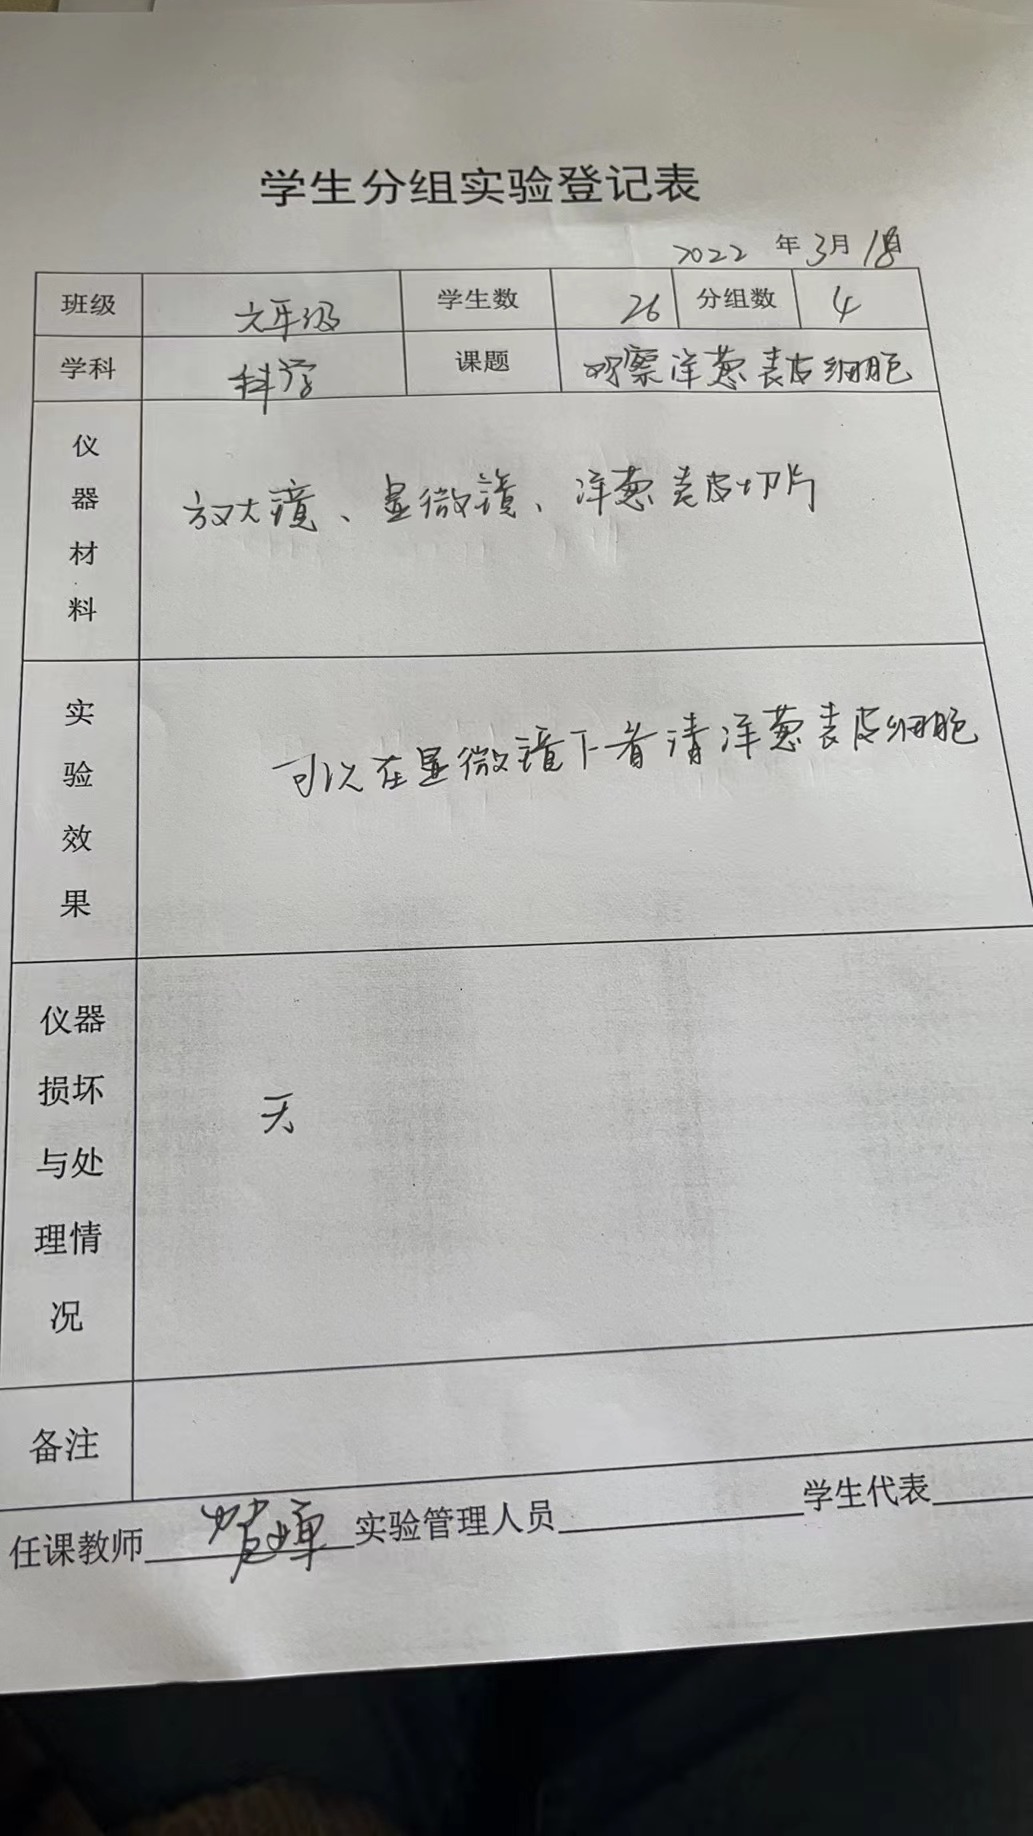 学生分组实验登记表
2022年3月18日
班级 六年级 学生数 26 分组数 4
学科 科学 课题 观察洋葱表皮细胞
仪器材料 放大镜、显微镜、洋葱表皮切片
实验效果 可以在显微镜下看清洋葱表皮细胞
仪器损坏与处理情况 无
备注
任课教师 实验管理人员 学生代表